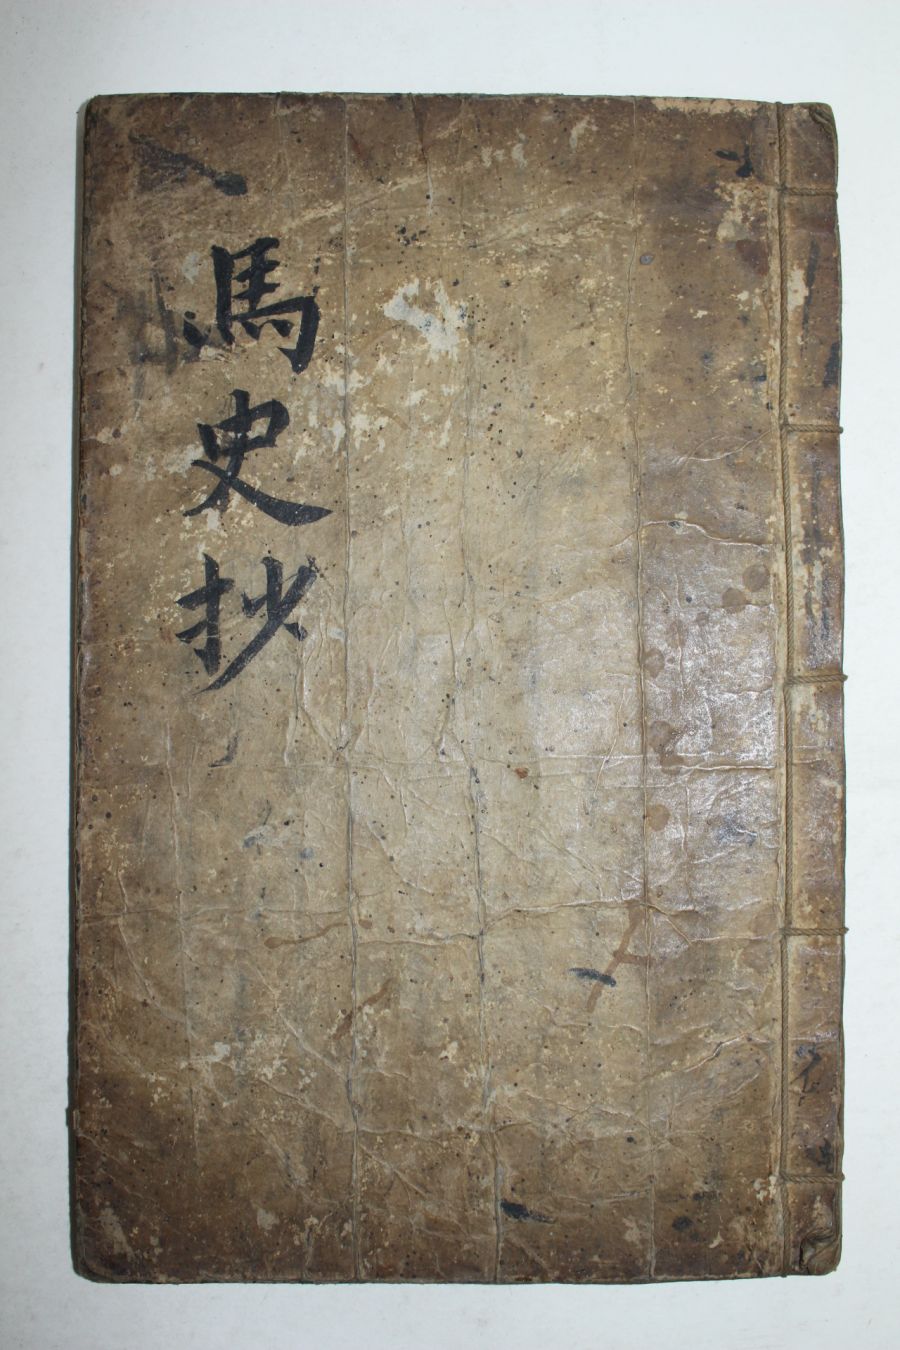 馬史抄